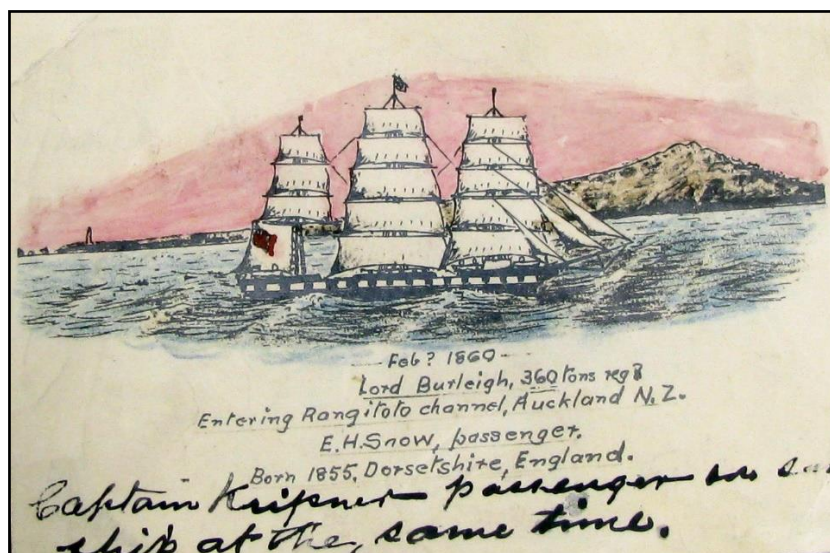 Feb? 1860
Lord Burleigh, 360 tons regd
Entering Rangitoto channel, Auckland N.Z.
E.H. Snow, passenger.
Born 1855, Dorsetshire, England.
Captain Kripner passenger on
ship at the, same time.